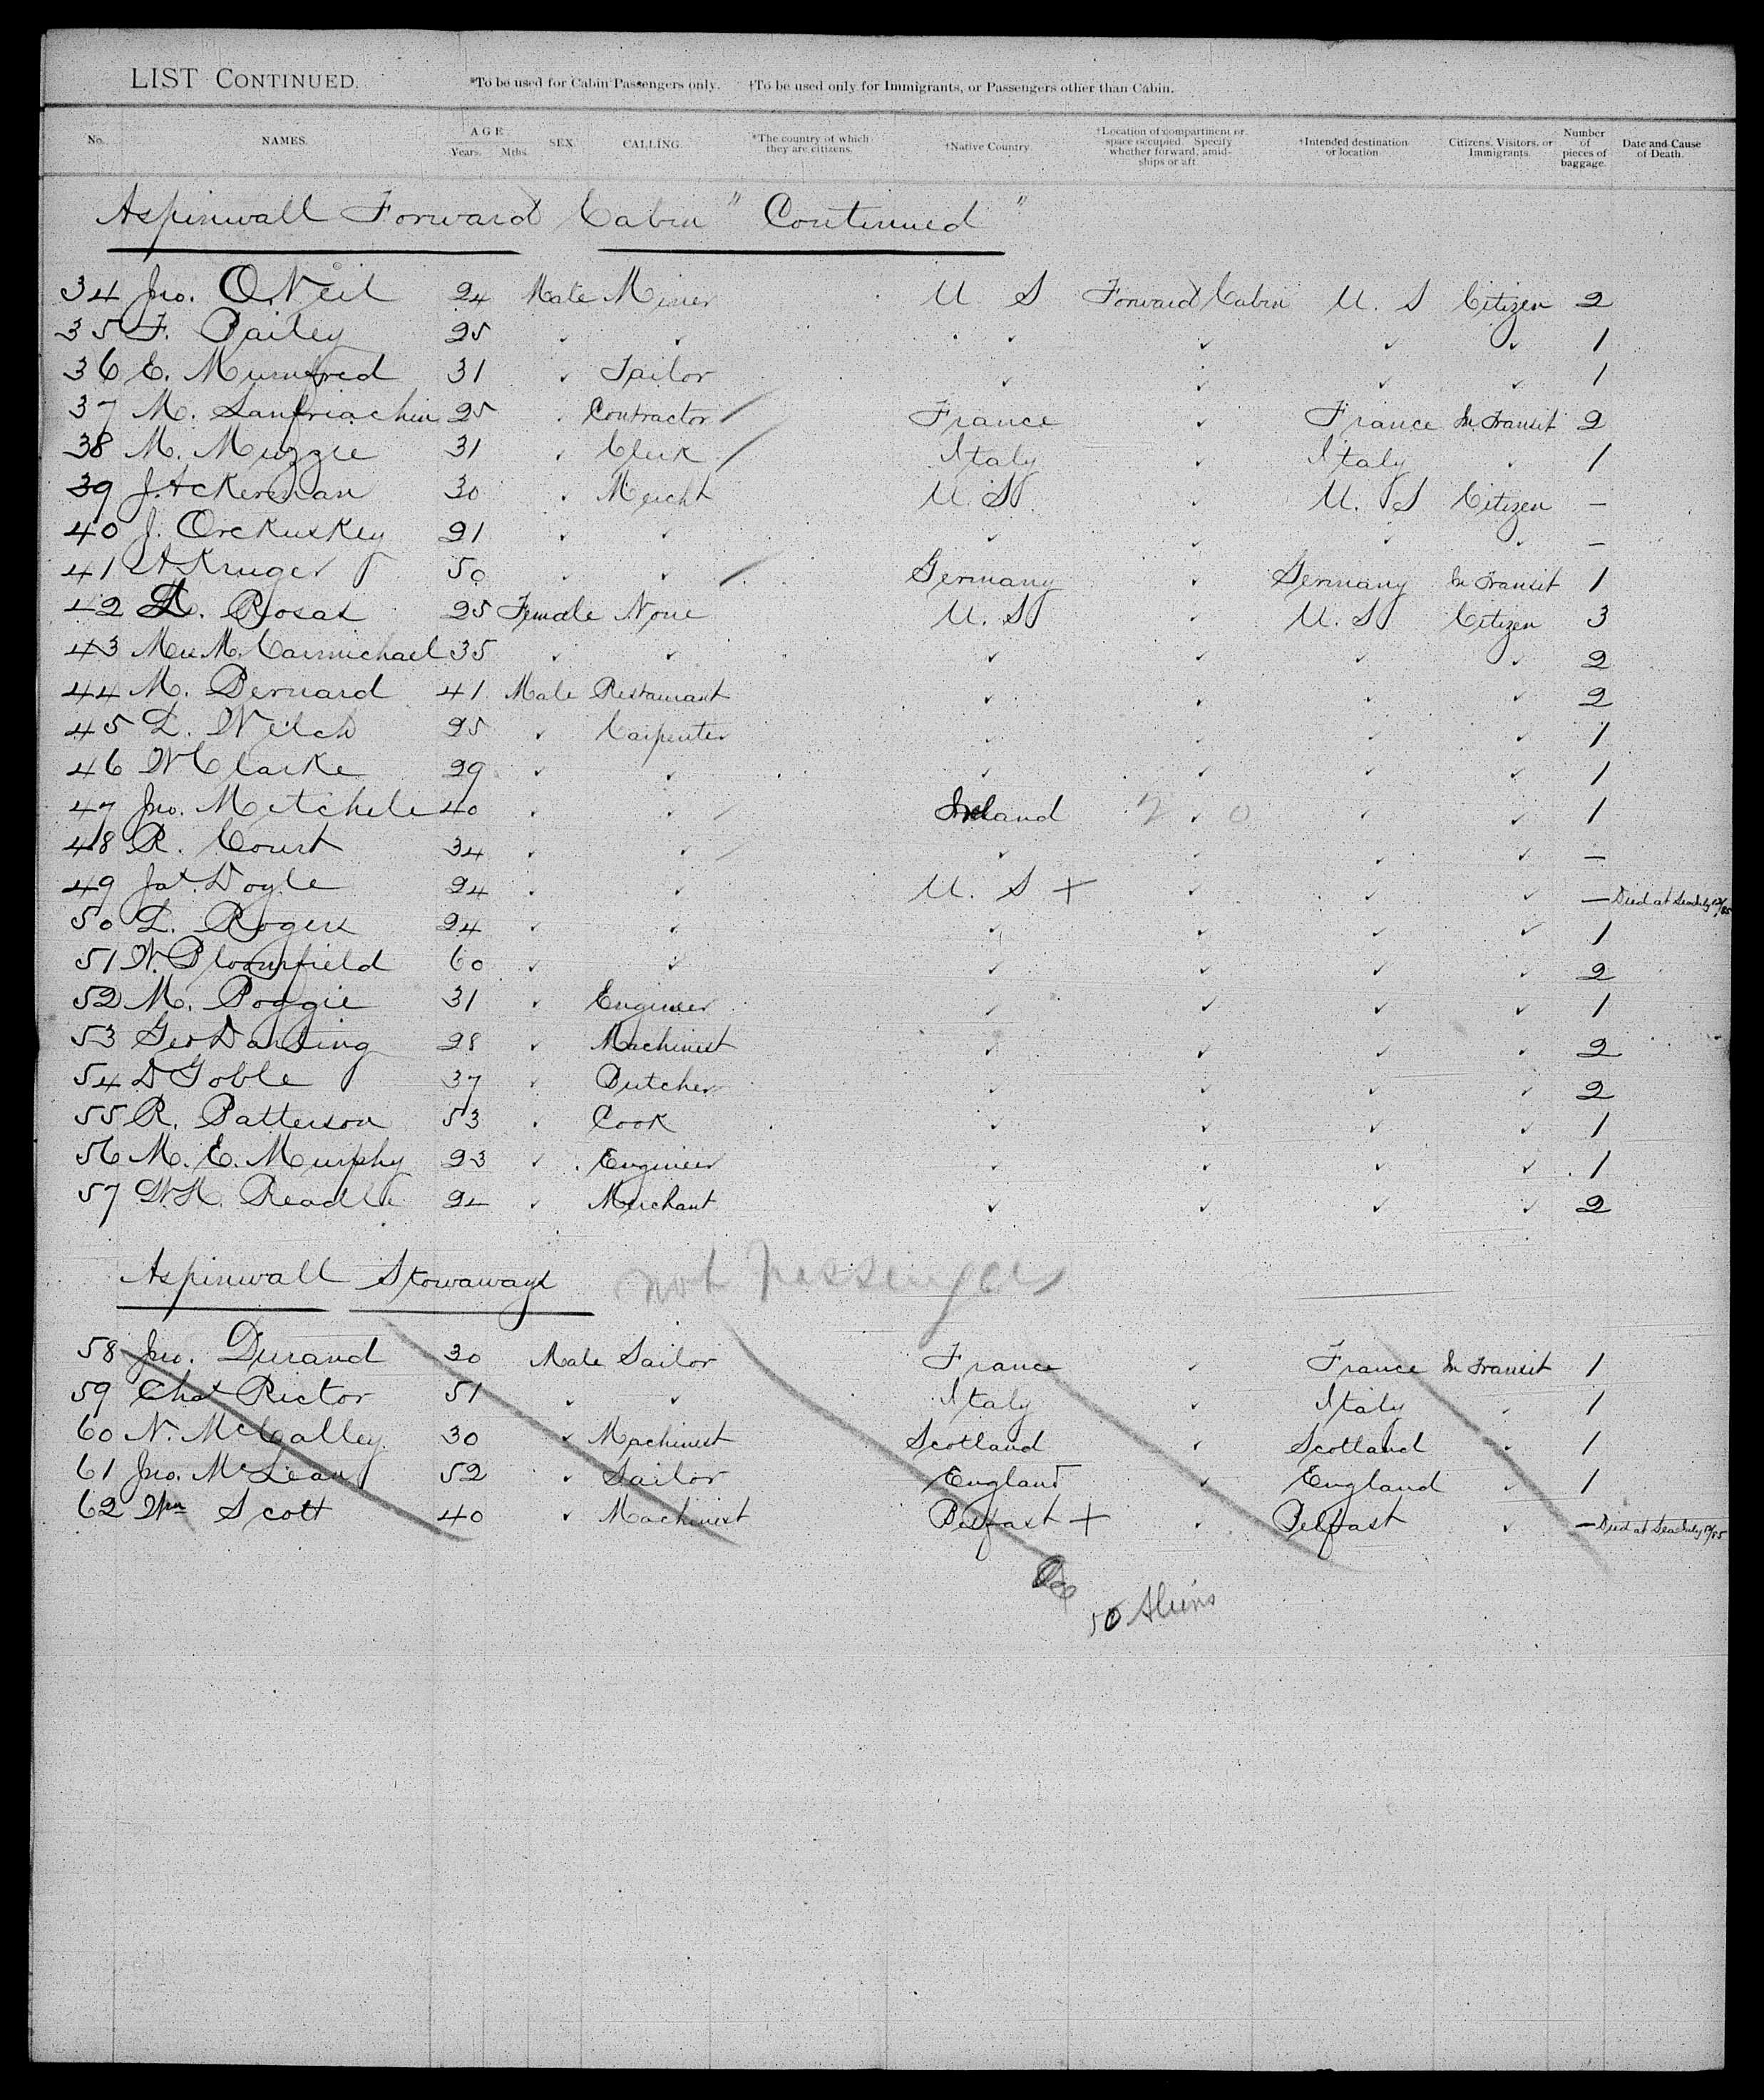 LIST CONTINUED. *To be used for Cabin Passengers only. †To be used only for Immigrants, or Passengers other than Cabin.
No. NAMES. AGE. Years. Mths. SEX. CALLING. *The country of which they are citizens. †Native Country. †Location of compartment or space occupied. Specify whether forward, amidships or aft. †Intended destination or location. Citizens, Visitors, or Immigrants. Number of pieces of baggage. Date and Cause of Death.
Aspinwall Forward Cabin "Continued"
34 Jno. O.Neil 24 Male Miner U. S Forward Cabin U. S Citizen 2
35 F. Bailey 25 ✓ ✓ ✓ ✓ ✓ ✓ 1
36 E. Mumfred 31 ✓ Tailor ✓ ✓ ✓ ✓ 1
37 M. 25 ✓ Contractor France ✓ France In Transit 2
38 M. Muzzie 31 ✓ Clerk Italy ✓ Italy ✓ 1
39 J. Ackerman 30 ✓ Mercht U. S ✓ U. S Citizen —
40 J. Orckuskey 21 ✓ ✓ ✓ ✓ ✓ ✓ —
41 A Kruger 50 ✓ ✓ Germany ✓ Germany In Transit 1
42 L. Rosas 25 Female None U. S ✓ U. S Citizen 3
43 M. Carmichael 35 ✓ ✓ ✓ ✓ ✓ ✓ 2
44 M. Bernard 41 Male Restaurant ✓ ✓ ✓ ✓ 2
45 L. Welch 25 ✓ Carpenter ✓ ✓ ✓ ✓ 1
46 W Clarke 29 ✓ ✓ ✓ ✓ ✓ ✓ 1
47 Jno. Mitchele 40 ✓ ✓ Ireland ✓ ✓ ✓ 1
48 R. Court 34 ✓ ✓ ✓ ✓ ✓ ✓ —
49 Jas. Doyle 24 ✓ ✓ U. S + ✓ ✓ ✓ — Died at Sea July /85
50 L. Rogers 24 ✓ ✓ ✓ ✓ ✓ ✓ 1
51 N. Bloomfield 60 ✓ ✓ ✓ ✓ ✓ ✓ 2
52 M. Poggie 31 ✓ Engineer ✓ ✓ ✓ ✓ 1
53 Geo Darling 28 ✓ Machinist ✓ ✓ ✓ ✓ 2
54 D Goble 37 ✓ Butcher ✓ ✓ ✓ ✓ 2
55 R. Patterson 53 ✓ Cook ✓ ✓ ✓ ✓ 1
56 M. E. Murphy 23 ✓ Engineer ✓ ✓ ✓ ✓ 1
57 W.H. 24 ✓ Merchant ✓ ✓ ✓ ✓ 2
Aspinwall Stowaways not passengers
58 Jno. Durand 30 Male Sailor France ✓ France In Transit 1
59 Chas Rictor 51 ✓ ✓ Italy ✓ Italy ✓ 1
60 N. McCalley 30 ✓ Machinist Scotland ✓ Scotland ✓ 1
61 Jno. McLean 52 ✓ Sailor England ✓ England ✓ 1
62 Wm Scott 40 ✓ Machinist Belfast + ✓ Belfast ✓ — Died at Sea July /85
50 Aliens